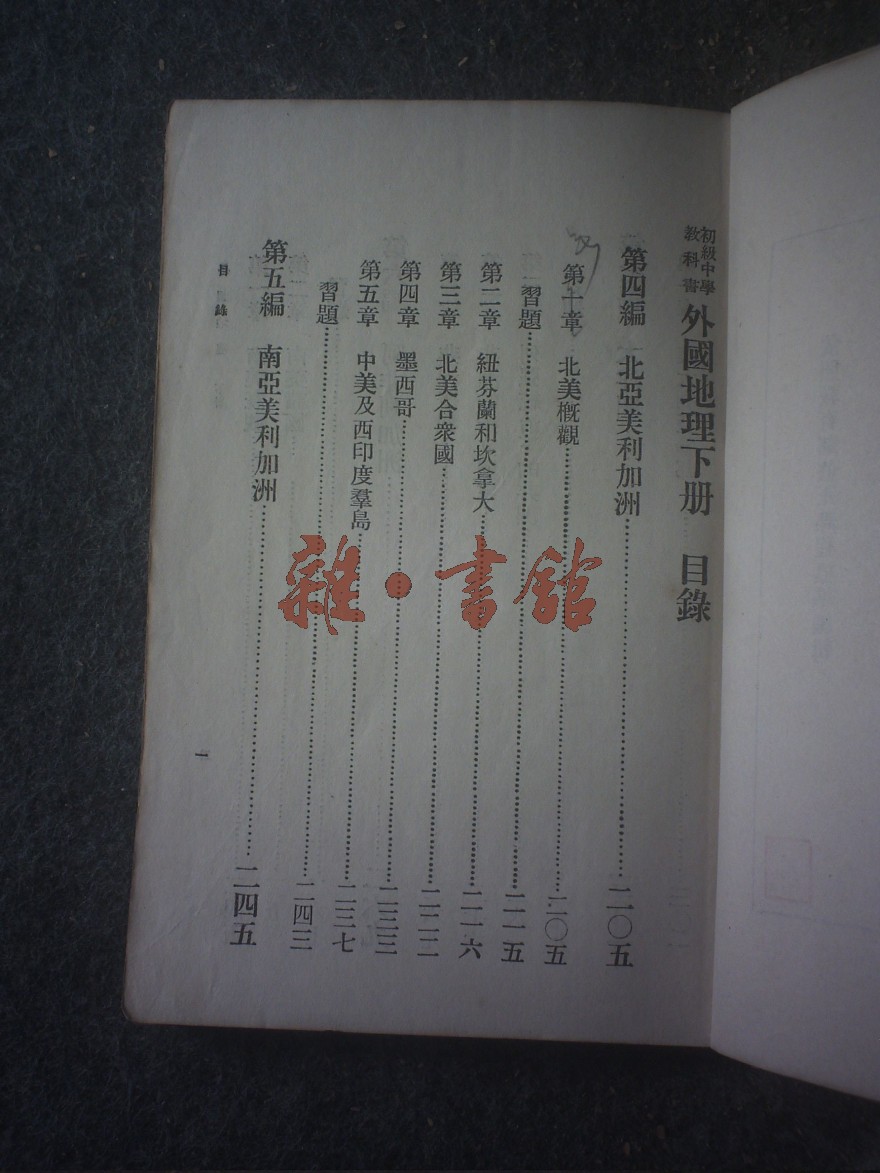 初級中學教科書 外國地理下册 目錄
第四編 北亞美利加洲……二〇五
第一章 北美槪觀……二〇五
習題……二一五
第二章 紐芬蘭和坎拿大……二一六
第三章 北美合衆國……二二二
第四章 墨西哥……二三三
第五章 中美及西印度羣島……二三七
習題……二四三
第五編 南亞美利加洲……二四五
目錄
一
雜·書館